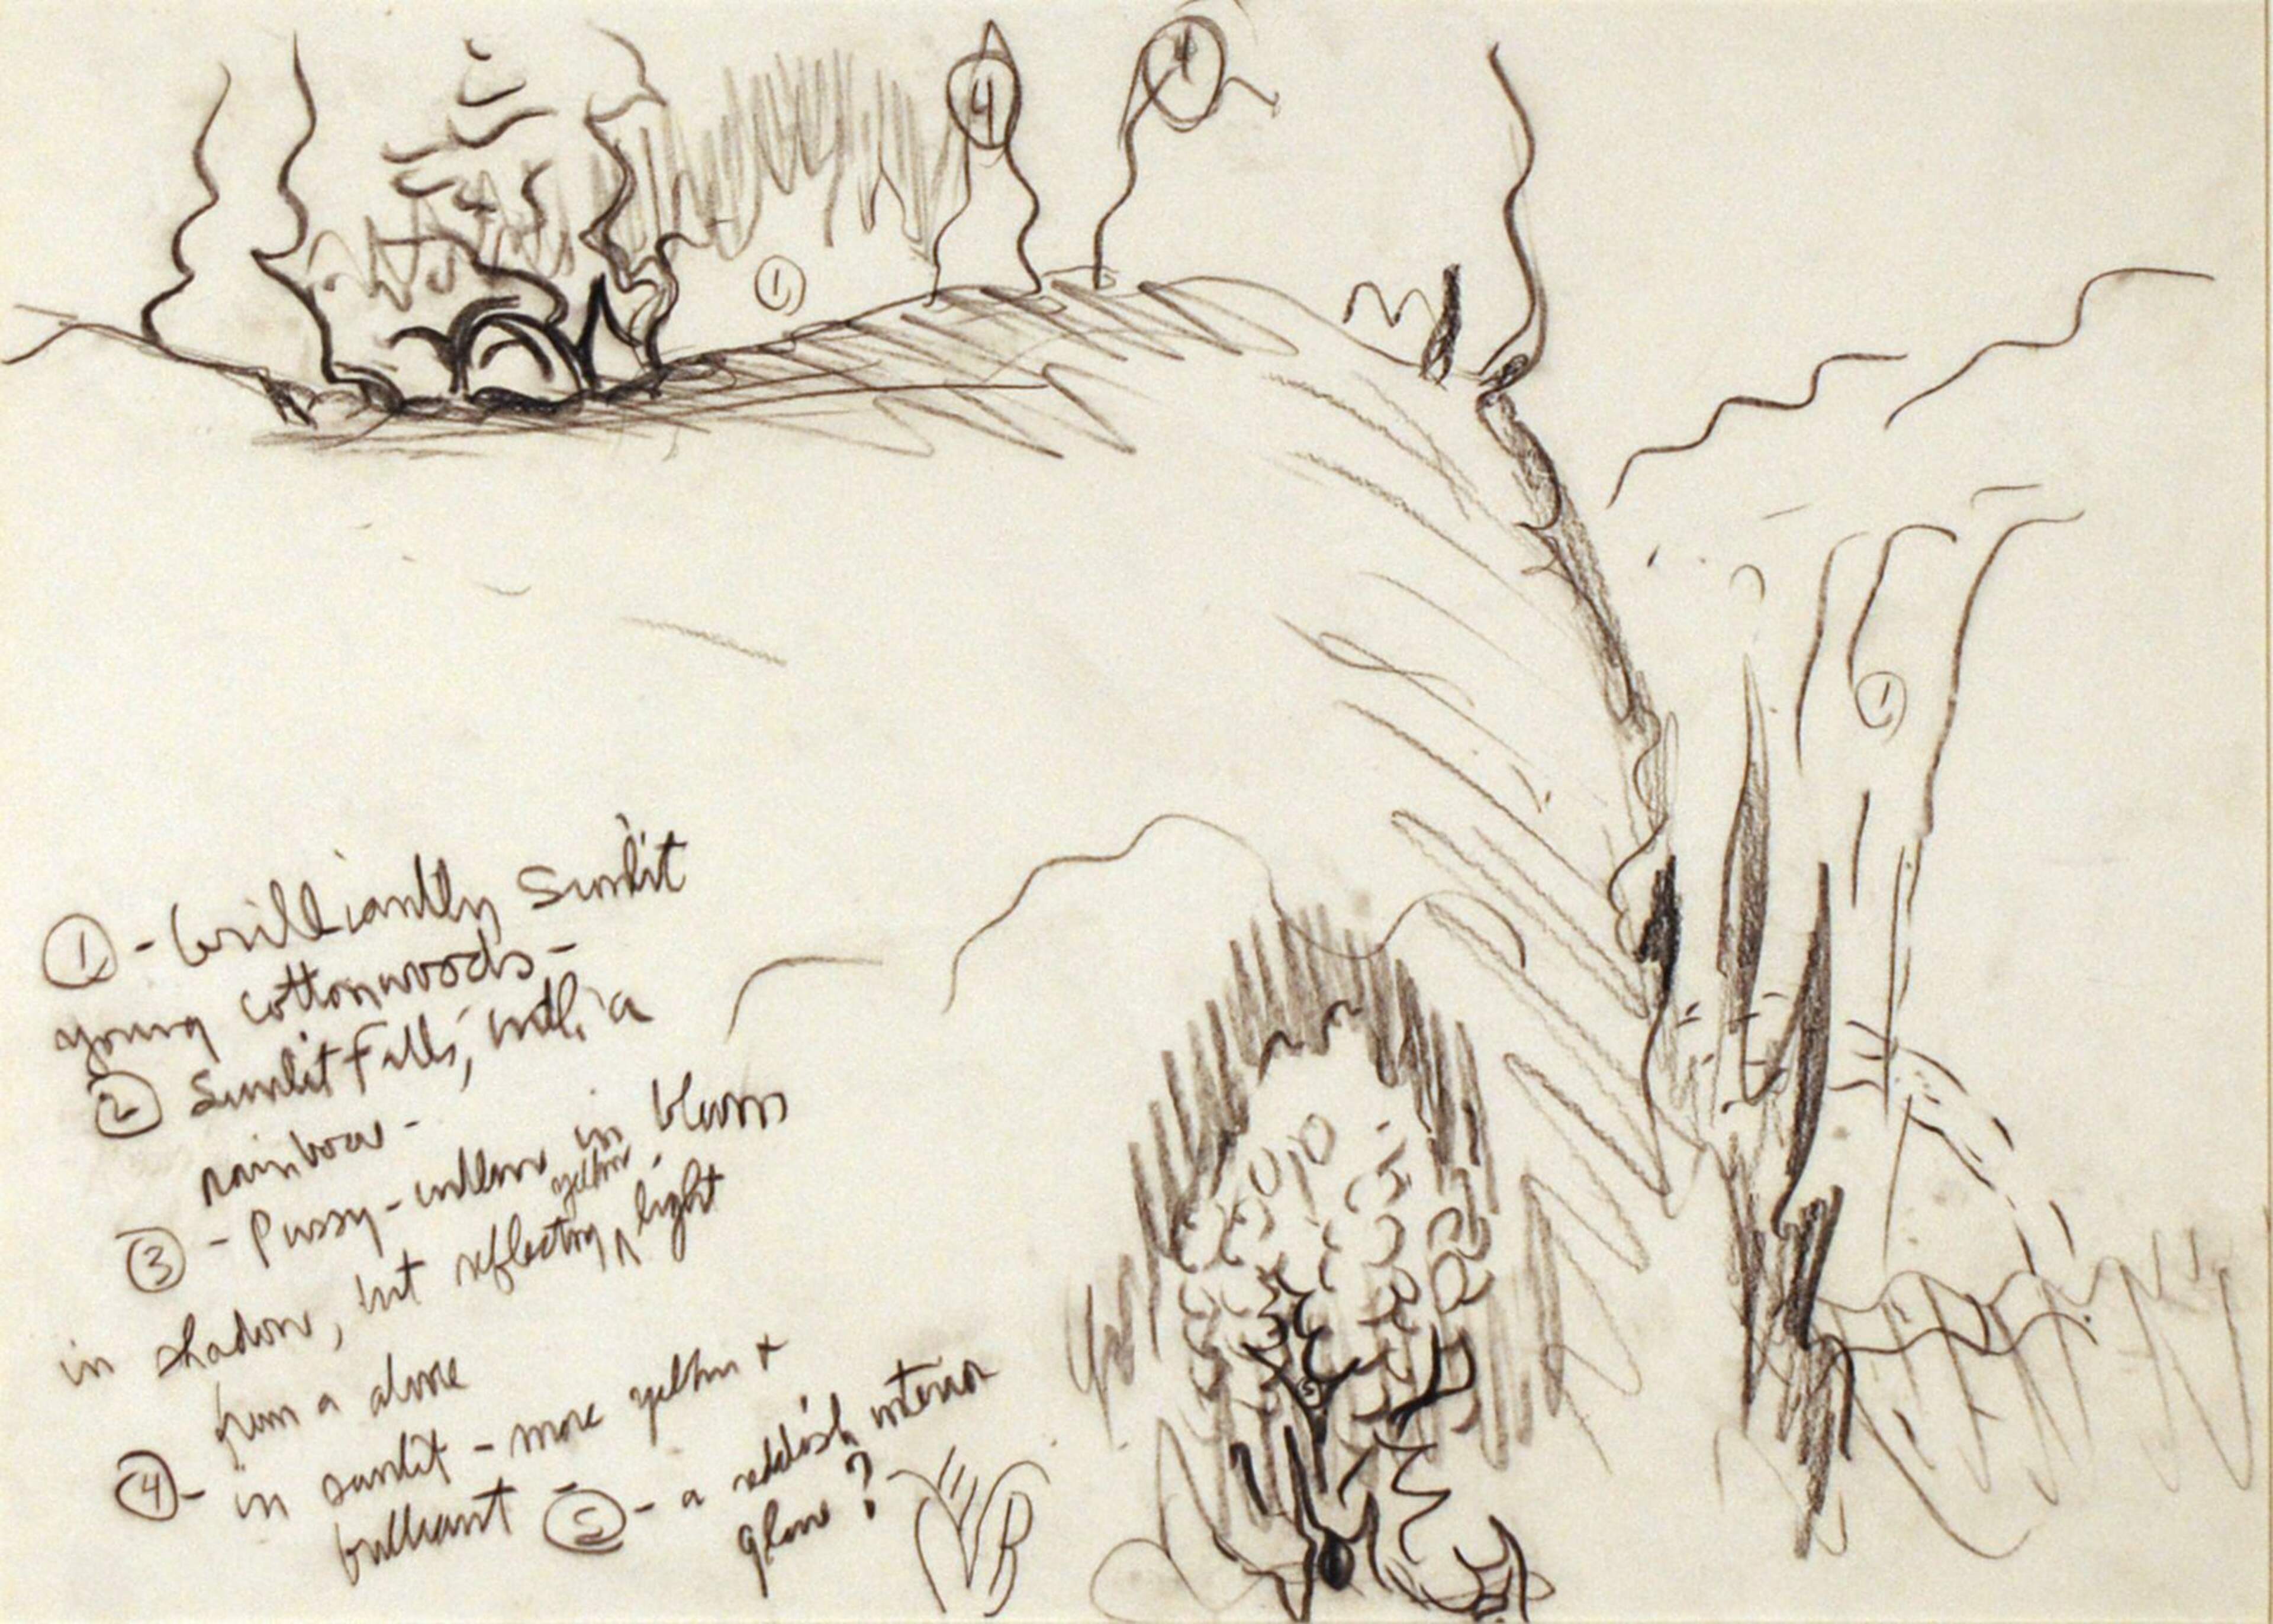 4
4
1
1
① - brilliantly sunlit
young cottonwoods -
② Sunlit Falls, with a
rainbow -
③ - Pussy-willow in bloom
yellow
in shadow, but reflecting ^ light
from a above
④ - in sunlit - more yellow +
brilliant - ⑤ - a reddish interior
glow?
5